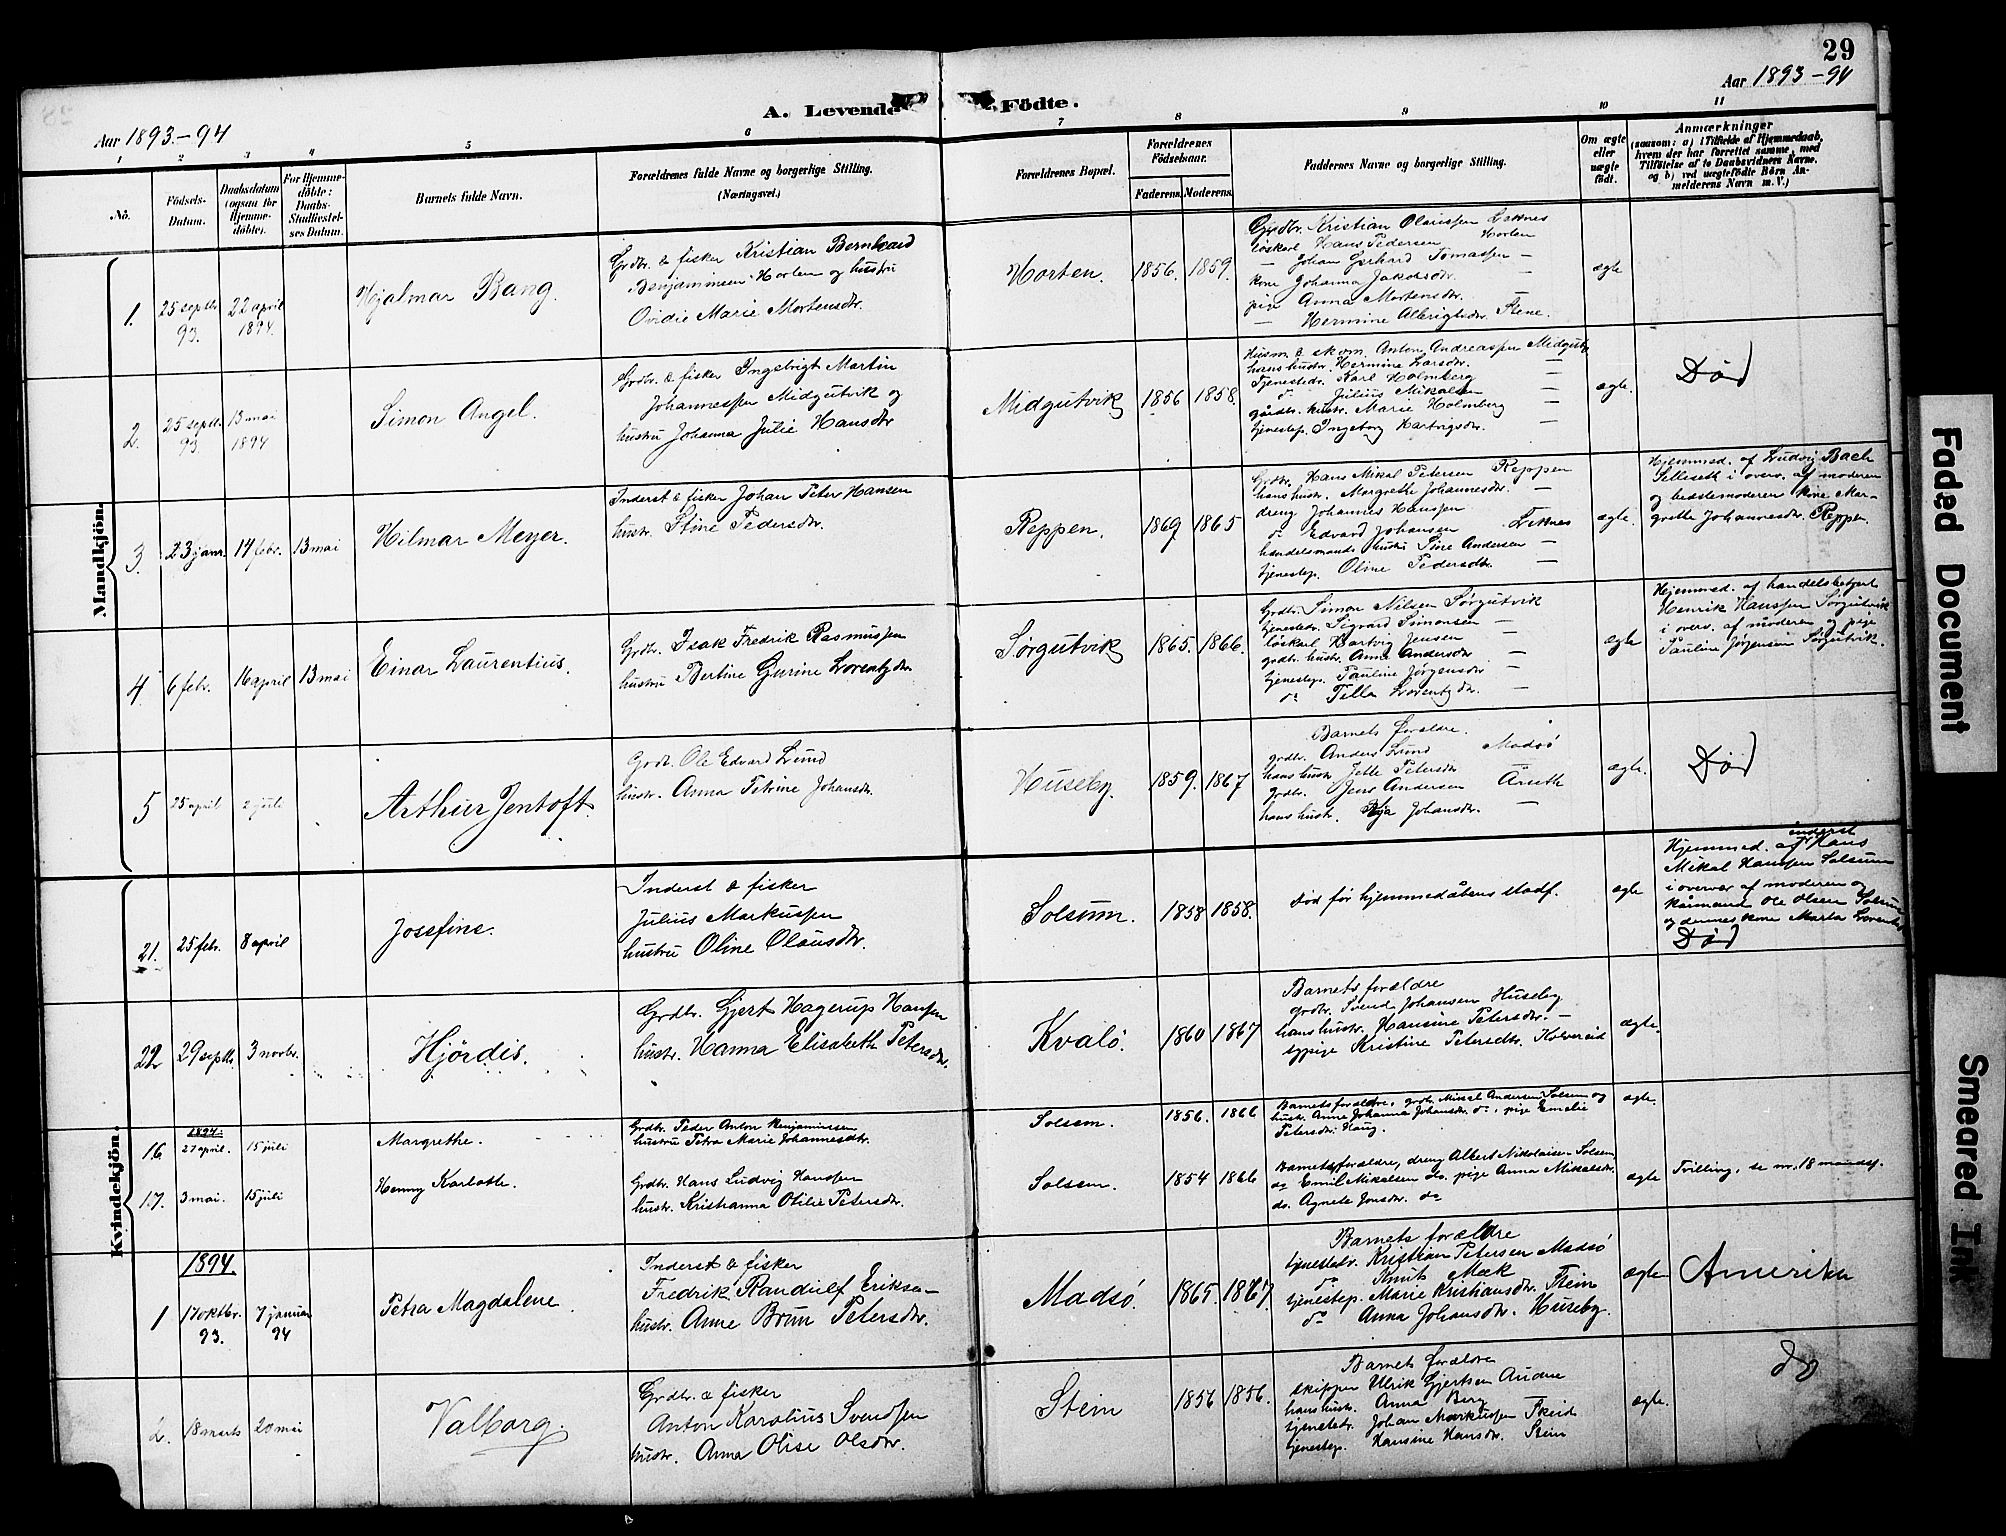 29
Aar 1893-94
A. Levende Födte.
Aar 1893.-94
1 2 3 4 5 6 7 8 9 10 11
No.
Födsels-Datum.
Daabsdatum (ogsaa for Hjemme-döbte).
For Hjemme-döbte: Daabs-Stadfæstel-ses Datum.
Barnets fulde Navn.
Forældrenes fulde Navne og borgerlige Stilling.
(Næringsvei.)
Forældrenes Bopæl.
Forældrenes Födselsaar.
Faderens. Moderens.
Faddernes Navne og borgerlige Stilling.
Om ægte eller uægte födt.
Anmærkninger
(saasom: a) i Tilfælde af Hjemmedaab,
hvem der har forrettet samme, med
Tilföielse af to Daabsvidners Navne,
og b) ved uægtefödte Börn An-
melderens Navn m. V.)
Mandkjön.
1. 25 septbr. 93. 22 april 1894. Hjalmar Bang.
Grdbr. & fisker Kristian Bernhard
Benjaminsen Horten og hustru
Ovidie Marie Mortensdtr.
Horten. 1856. 1859.
Grdbr. Kristian Olaussen Leknes
løskarl Hans Pedersen Horten
— Johan Gerhard Tomassen —
kone Johanna Jakobsdtr. —
pige Anna Mortensdtr. —
— Hermine Albrigtsdtr. Stene.
ægte
2. 25 septbr. 93. 13 mai 1894 Simon Angel.
Grdbr. & fisker Ingebrigt Martin
Johannessen Midgutvik og
hustru Johanna Julie Hansdtr
Midgutvik 1856 1858.
Husm. & skom. Anton Andreassen Midgutv.
hans hustr. Hermine Larsdtr. —
Tjenestedr. Karl Holmberg —
do Julius Mikalsen —
gårdbr. hustr. Marie Holmberg —
tjenestep. Ingeborg Hartvigsdtr. —
ægte.
Død
3. 23 janr. 14 febr. 13 mai Hilmar Meyer.
Inderst & fisker Johan Peter Hansen
hustr. Stine Pedersdtr.
Reppen. 1869 1865
Grdbr. Hans Mikal Petersen Reppen
hans hustr. Margrethe Johannesdtr. —
dreng Johannes Hanssen
do Edvard Johansen Leknes
handelsmands hustru Sine Andersen —
tjenestep. Oline Pedersdtr. —
ægte.
Hjemmed. af Ludvig Bach
Selleseth i overv. af moderen
og bedstemoderen kone Mar-
grethe Johannesdtr. Reppen.
4. 6 febr. 16 april 13 mai Einar Laurentius.
Grdbr. Isak Fredrik Rasmussen
hustru Bertine Gurine Lorentzdtr
Sørgutvik 1865. 1866.
Grdbr. Simon Nilsen Sørgutvik
tjenestedr. Sigvard Simonsen —
løskarl Hartvig Jensen —
grdbr. hustr. Anna Andersdtr —
tjenestep. Pauline Jørgensdtr —
do Tilla Lorentzdtr. —
ægte
Hjemmed. af handelsbetjent
Henrik Hanssen Sørgutvik
i overv. af moderen og pige
Pauline Jørgensen Sørgutvik.
5 25 april 2 juli Arthur Jentoft.
Grdb. Ole Edvard Lund
hustr. Anna Petrine Johansdtr.
Huseby. 1859. 1867
Barnets forældre.
grdbr. Anders Lund Madsö
hans hustr. Jette Petersdtr
grdbr. Jens Andersen Årseth
hans hustr. Johansdtr. —
ægte.
Død
Kvindekjön.
21. 25 febr. 8 april Josefine.
Inderst & fisker
Julius Markussen
hustru Oline Olausdtr.
Solsum. 1858 1858.
død før hjemmedåbens stadf.
ægte
Hjemmed. af inderst Hans
Mikal Hanssen Solsum
i overvær af moderen og
kårmand Ole Olsen Solsum
og dennes kone Marta Lorentsd.
Død
22 29 septbr. 3 novbr. Hjördis.
Grdbr. Gjert Hagerup Hansen
hustr. Hanna Elisabeth Petersdtr.
Kvalö. 1860 1867
Barnets forældre
grdbr. Svend Johansen Huseby
hans hustr. Hansine Petersdtr. —
sypige Kristine Petersdtr. Kolvereid
ægte.
1894
16 27 april. 15 juli Margrethe.
Grdbr. Peder Anton Benjaminssen
hustru Petra Marie Johannesdtr.
Solsem. 1856. 1866
Barnets forældre, grdb. Mikal Andersen Solsem og
hustr. Anne Johanna Johansdtr. do, pige Emelie
Petersdtr. Haug.
ægte.
17. 3 mai. 15 juli Henny Karlotte.
Grdbr. Hans Ludvig Hanssen
hustr. Kristianna Otilie Petersdtr.
Solsem. 1854 1866
Barnets forældre, dreng Albert Nikolaisen Solsem
do Emil Mikalsen do. pige Anna Mikalsdtr
do. Agnete Jonsdtr. do
ægte
Tvilling, se nr. 18 mandkj.
1894.
1 17 oktbr. 93. 7 januar 94 Petra Magdalene.
Inderst & fisker
Fredrik Randulf Eriksen
hustr. Anne Brun Petersdtr.
Madsö. 1865. 1867
Barnets forældre
tjenestedr. Kristian Petersen Madsö
do Knut Mæk
tjenestep. Marie Kristiansdtr. Stein
do Anna Johansdtr. Huseby.
ægte
Amerika
2. 18 marts 20 mai Valborg.
Grdbr. & fisker
Anton Karolius Svendsen
hustr. Anna Olise Olsdtr.
Stein 1856 1856.
Barnets forældre
skipper Ulrik Gjertsen
hans hustr. Anna Berg
tjenestedr. Johan Markussen
tjenestep. Hansine Hansdtr. Stein
ægte.
do
Faded Document
Smeared Ink